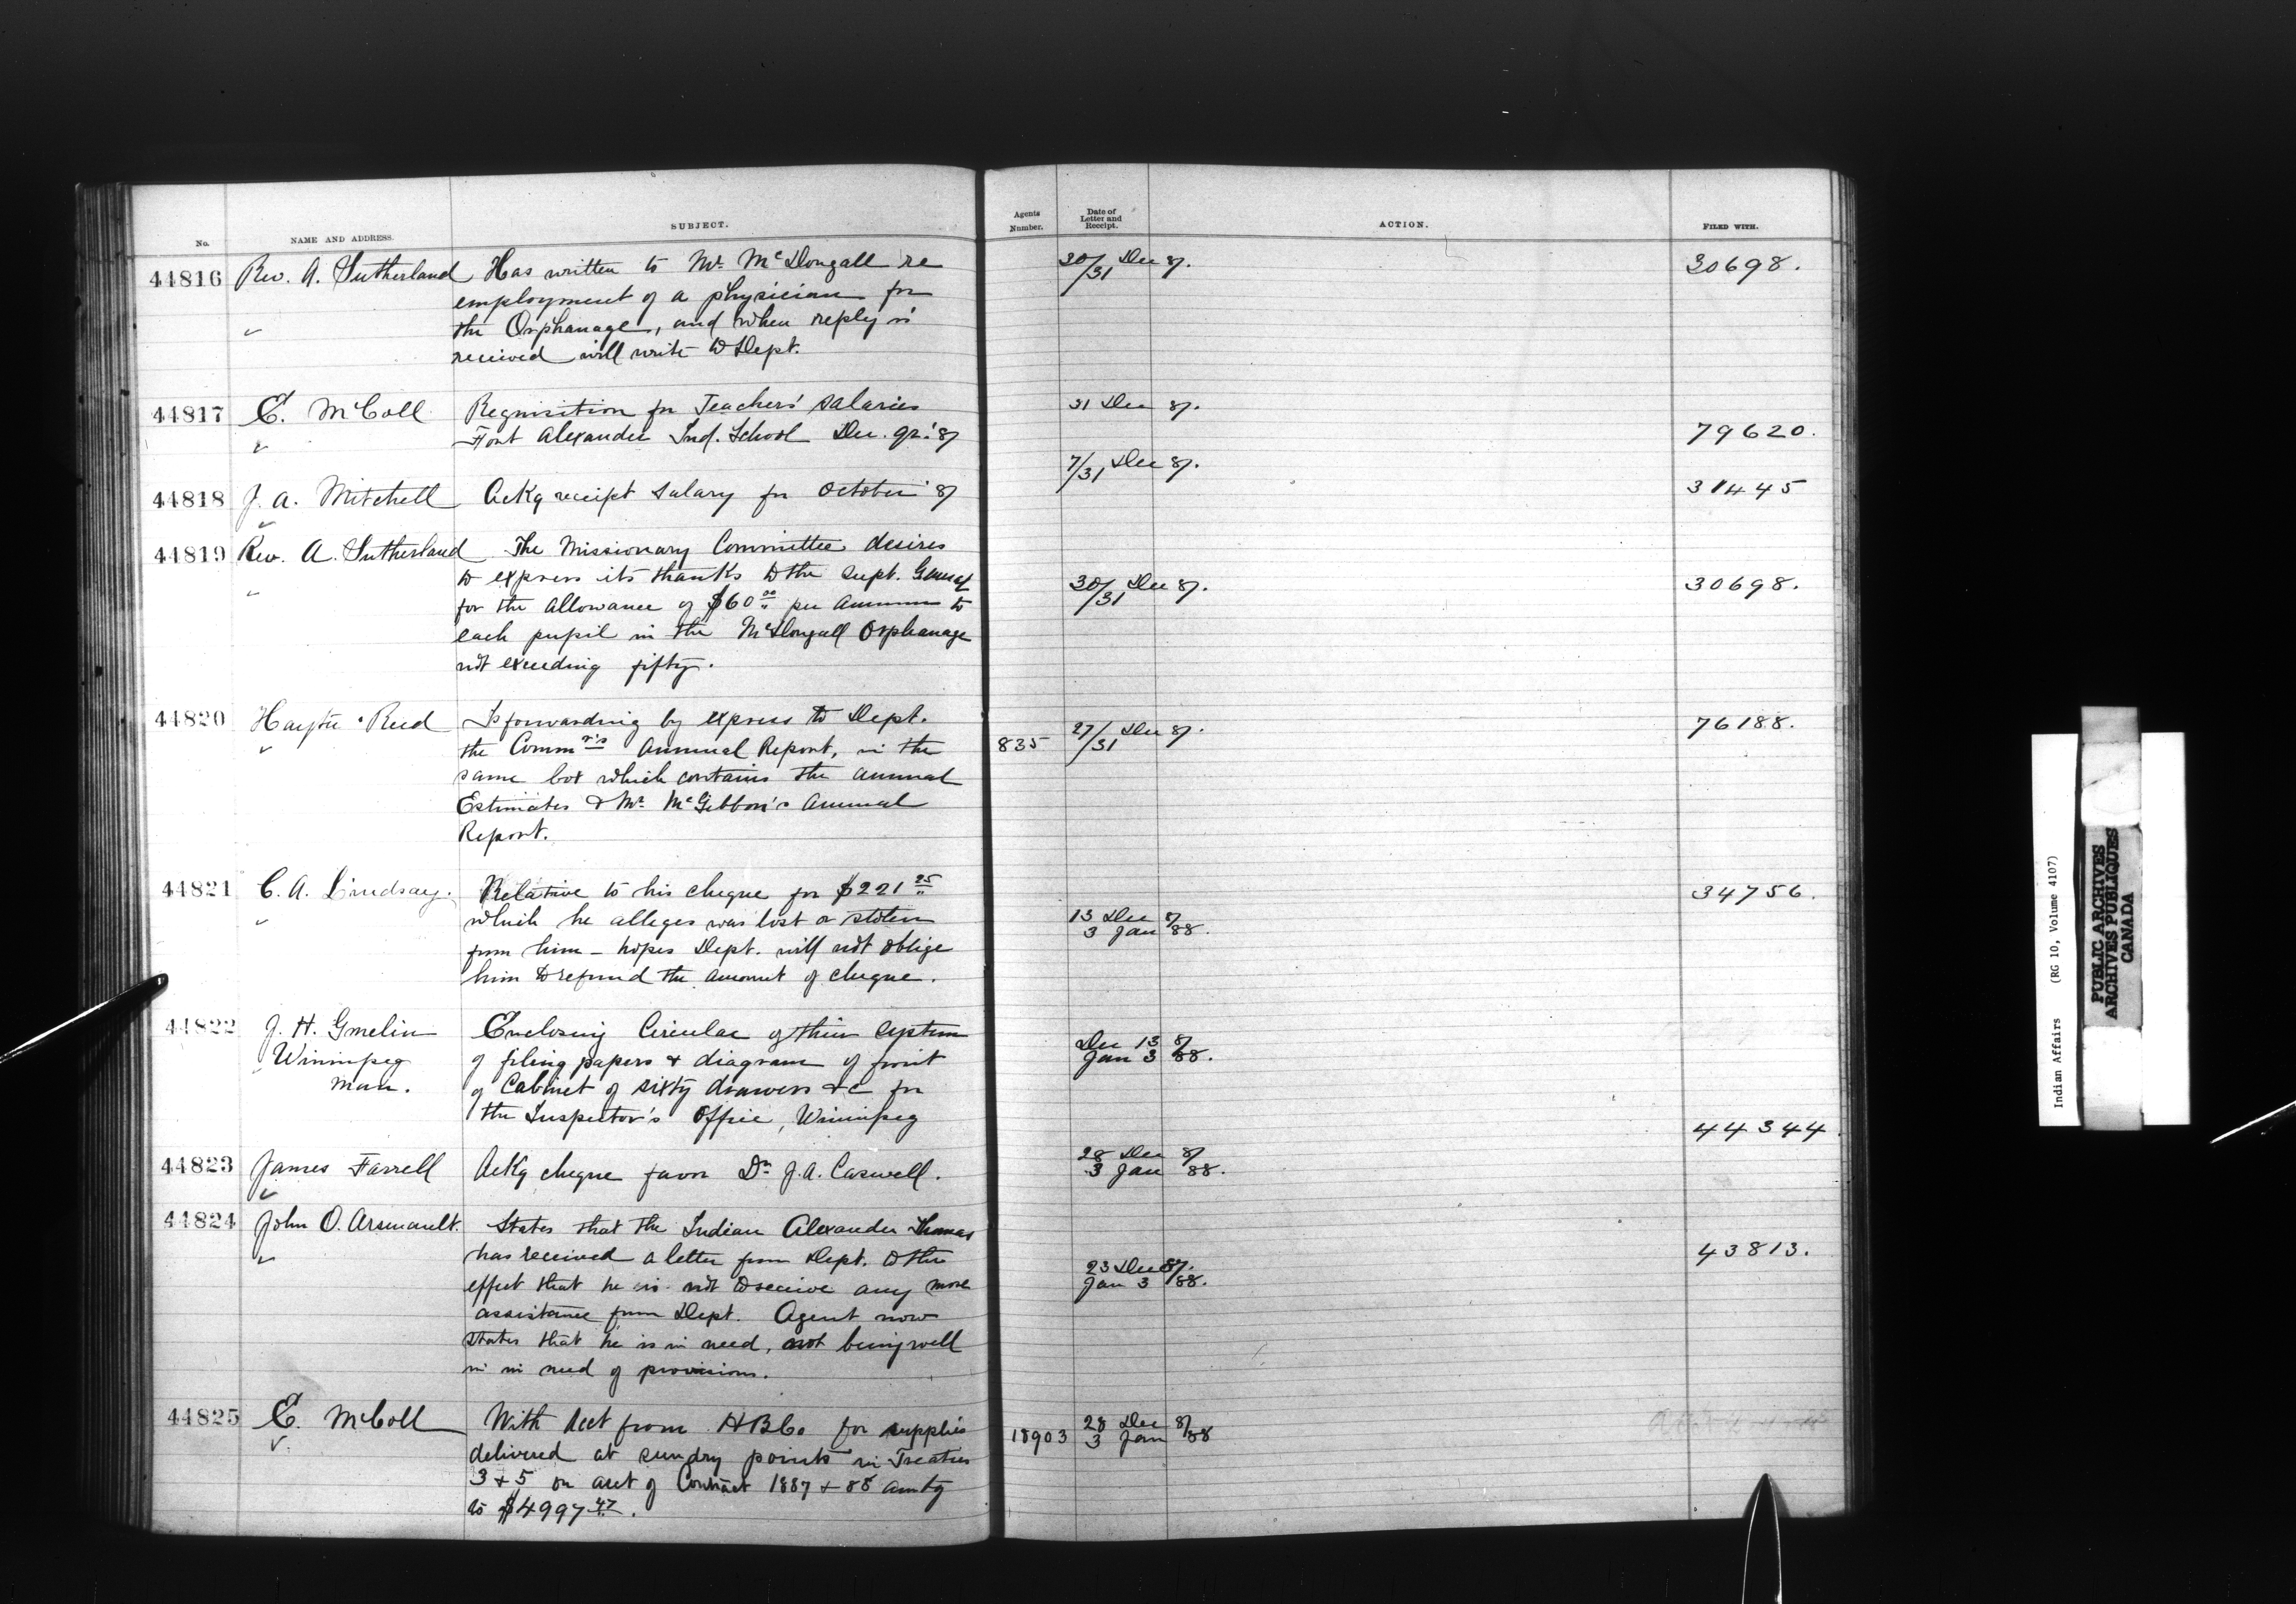 No. NAME AND ADDRESS. SUBJECT. Agents Number. Date of Letter and Receipt. ACTION. FILED WITH.
44816 Rev. A. Sutherland Has written to Mr. McDougall re 30/31 Dec 87. 30698.
employment of a physician for
the Orphanage, and when reply is
received will write to Dept.
44817 E. McColl Requisition for Teachers' salaries 31 Dec 87.
Fort Alexander Ind. School Dec. qr. '87 79620.
44818 J. A. Mitchell Ackg receipt salary for October '87 7/31 Dec 87. 31445
44819 Rev. A. Sutherland The Missionary Committee desires
to express its thanks to the Supt. General 30/31 Dec 87. 30698.
for the allowance of $60.00 per annum to
each pupil in the McDougall Orphanage
not exceeding fifty.
44820 Hayter Reed Is forwarding by express to Dept. 76188.
the Commr's Annual Report, in the 835 27/31 Dec 87.
same box which contains the annual
Estimates & Mr. McGibbon's annual
Report.
44821 C. A. Lindsay. Relative to his cheque for $221.25 34756.
which he alleges was lost or stolen 13 Dec 87
from him – hopes Dept. will not oblige 3 Jan 88.
him to refund the amount of cheque.
44822 J. H. Gmelin Enclosing Circular of their system Dec 13 87
Winnipeg of filing papers & diagram of front Jan 3 88.
Man. of Cabinet of sixty drawers &c for
the Inspector's Office, Winnipeg 44344
44823 James Farrell Ackg cheque favor Dr. J. A. Caswell. 28 Dec 87
3 Jan 88.
44824 John O. Arsenault. States that the Indian Alexander Thomas
has received a letter from Dept. to the 43813.
effect that he is not to receive any more 23 Dec 87.
assistance from Dept. Agent now Jan 3 88.
states that he is in need, not being well
in in need of provisions.
44825 E. McColl With acct from HBCo for supplies 28 Dec 87
delivered at sundry points in Treaties 18903 3 Jan 88
3 & 5 on acct of Contract 1887 & 88 amtg
to $4997.47.
Indian Affairs (RG 10, Volume 4107)
PUBLIC ARCHIVES
ARCHIVES PUBLIQUES
CANADA